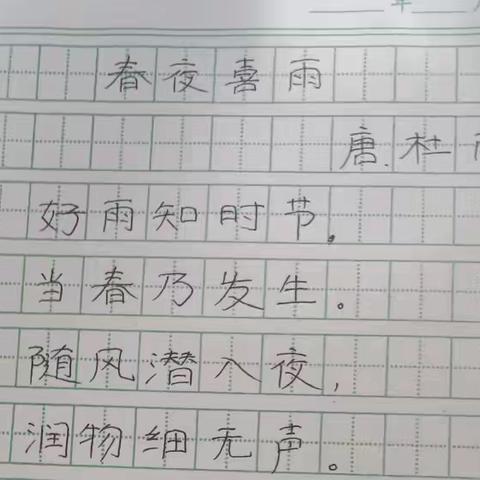 年 月
春夜喜雨
唐.杜
好雨知时节。
当春乃发生。
随风潜入夜,
润物细无声。